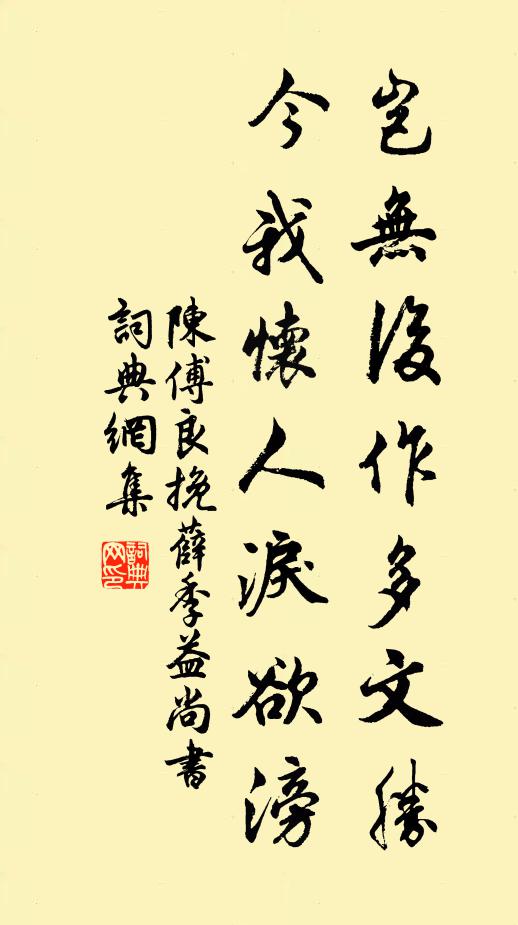 豈無後作多文勝
今我懷人淚欲滂
陳傅良挽薛季益尚書
詞典網集
詞典网印